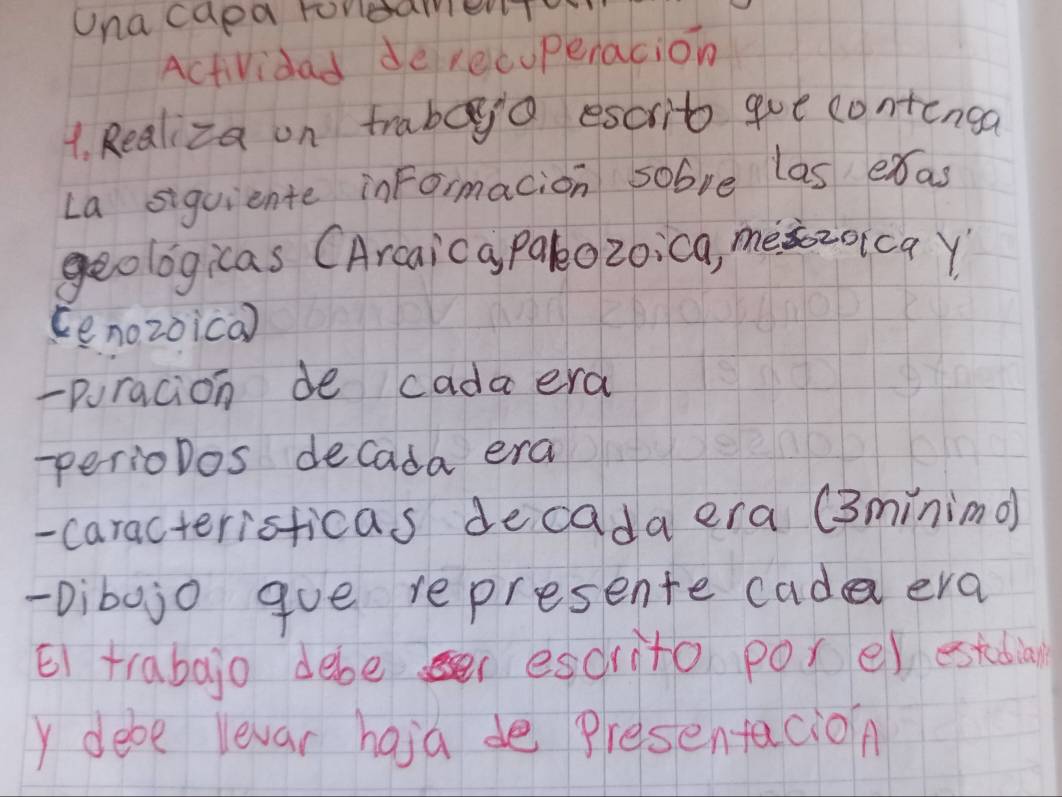 Una capa
Actividad de recuperación
1. Realiza un trabajo escrito que contenga
La siguiente información sobre las eras
geológicas (Arcaica, Paleozoica, mesozoica y
Cenozoica)
-Duración de cada era
-perioDos de cada era
-características de cada era (3 mínimo)
-Dibujo que represente cada era
El trabajo debe ser escrito por el estudiante
y debe llevar hoja de Presentación